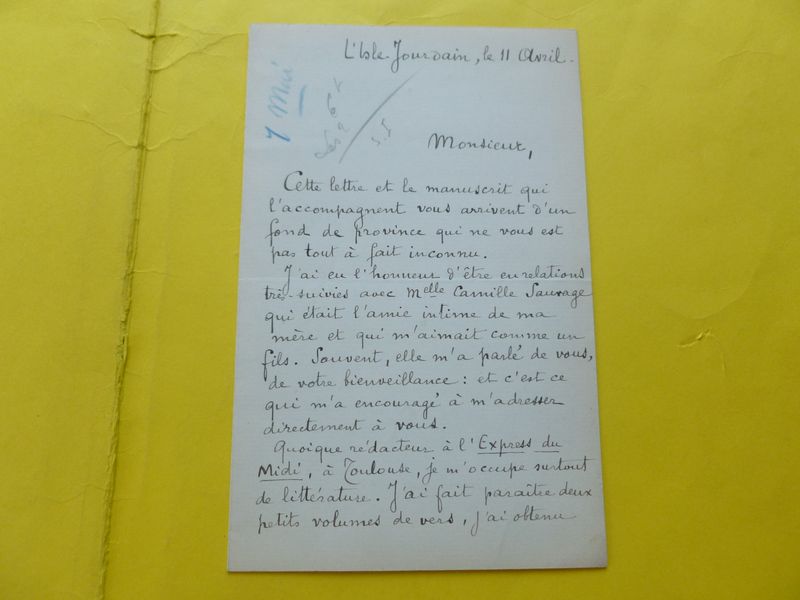 L'Isle-Jourdain, le 11 Avril.
7 Mai
Monsieur,
Cette lettre et le manuscrit qui
l'accompagnent vous arrivent d'un
fond de province qui ne vous est
pas tout à fait inconnu.
J'ai eu l'honneur d'être en relations
très-suivies avec Melle Camille Sauvage
qui était l'amie intime de ma
mère et qui m'aimait comme un
fils. Souvent, elle m'a parlé de vous,
de votre bienveillance : et c'est ce
qui m'a encouragé à m'adresser
directement à vous.
Quoique rédacteur à l'Express du
Midi, à Toulouse, je m'occupe surtout
de littérature. J'ai fait paraître deux
petits volumes de vers, j'ai obtenu